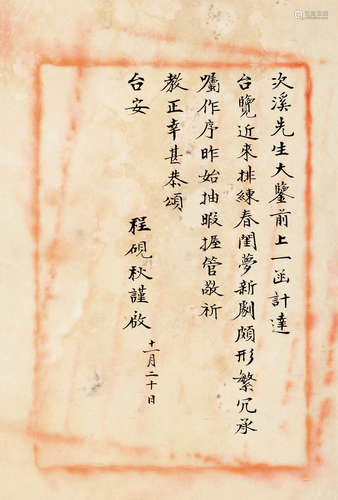 次溪先生大鑒前上一函計達
台覽近來排練春閨夢新劇頗形繁冗承
囑作序昨始抽暇握管敬祈
教正幸甚恭頌
台安
程硯秋謹啟
十一月二十日